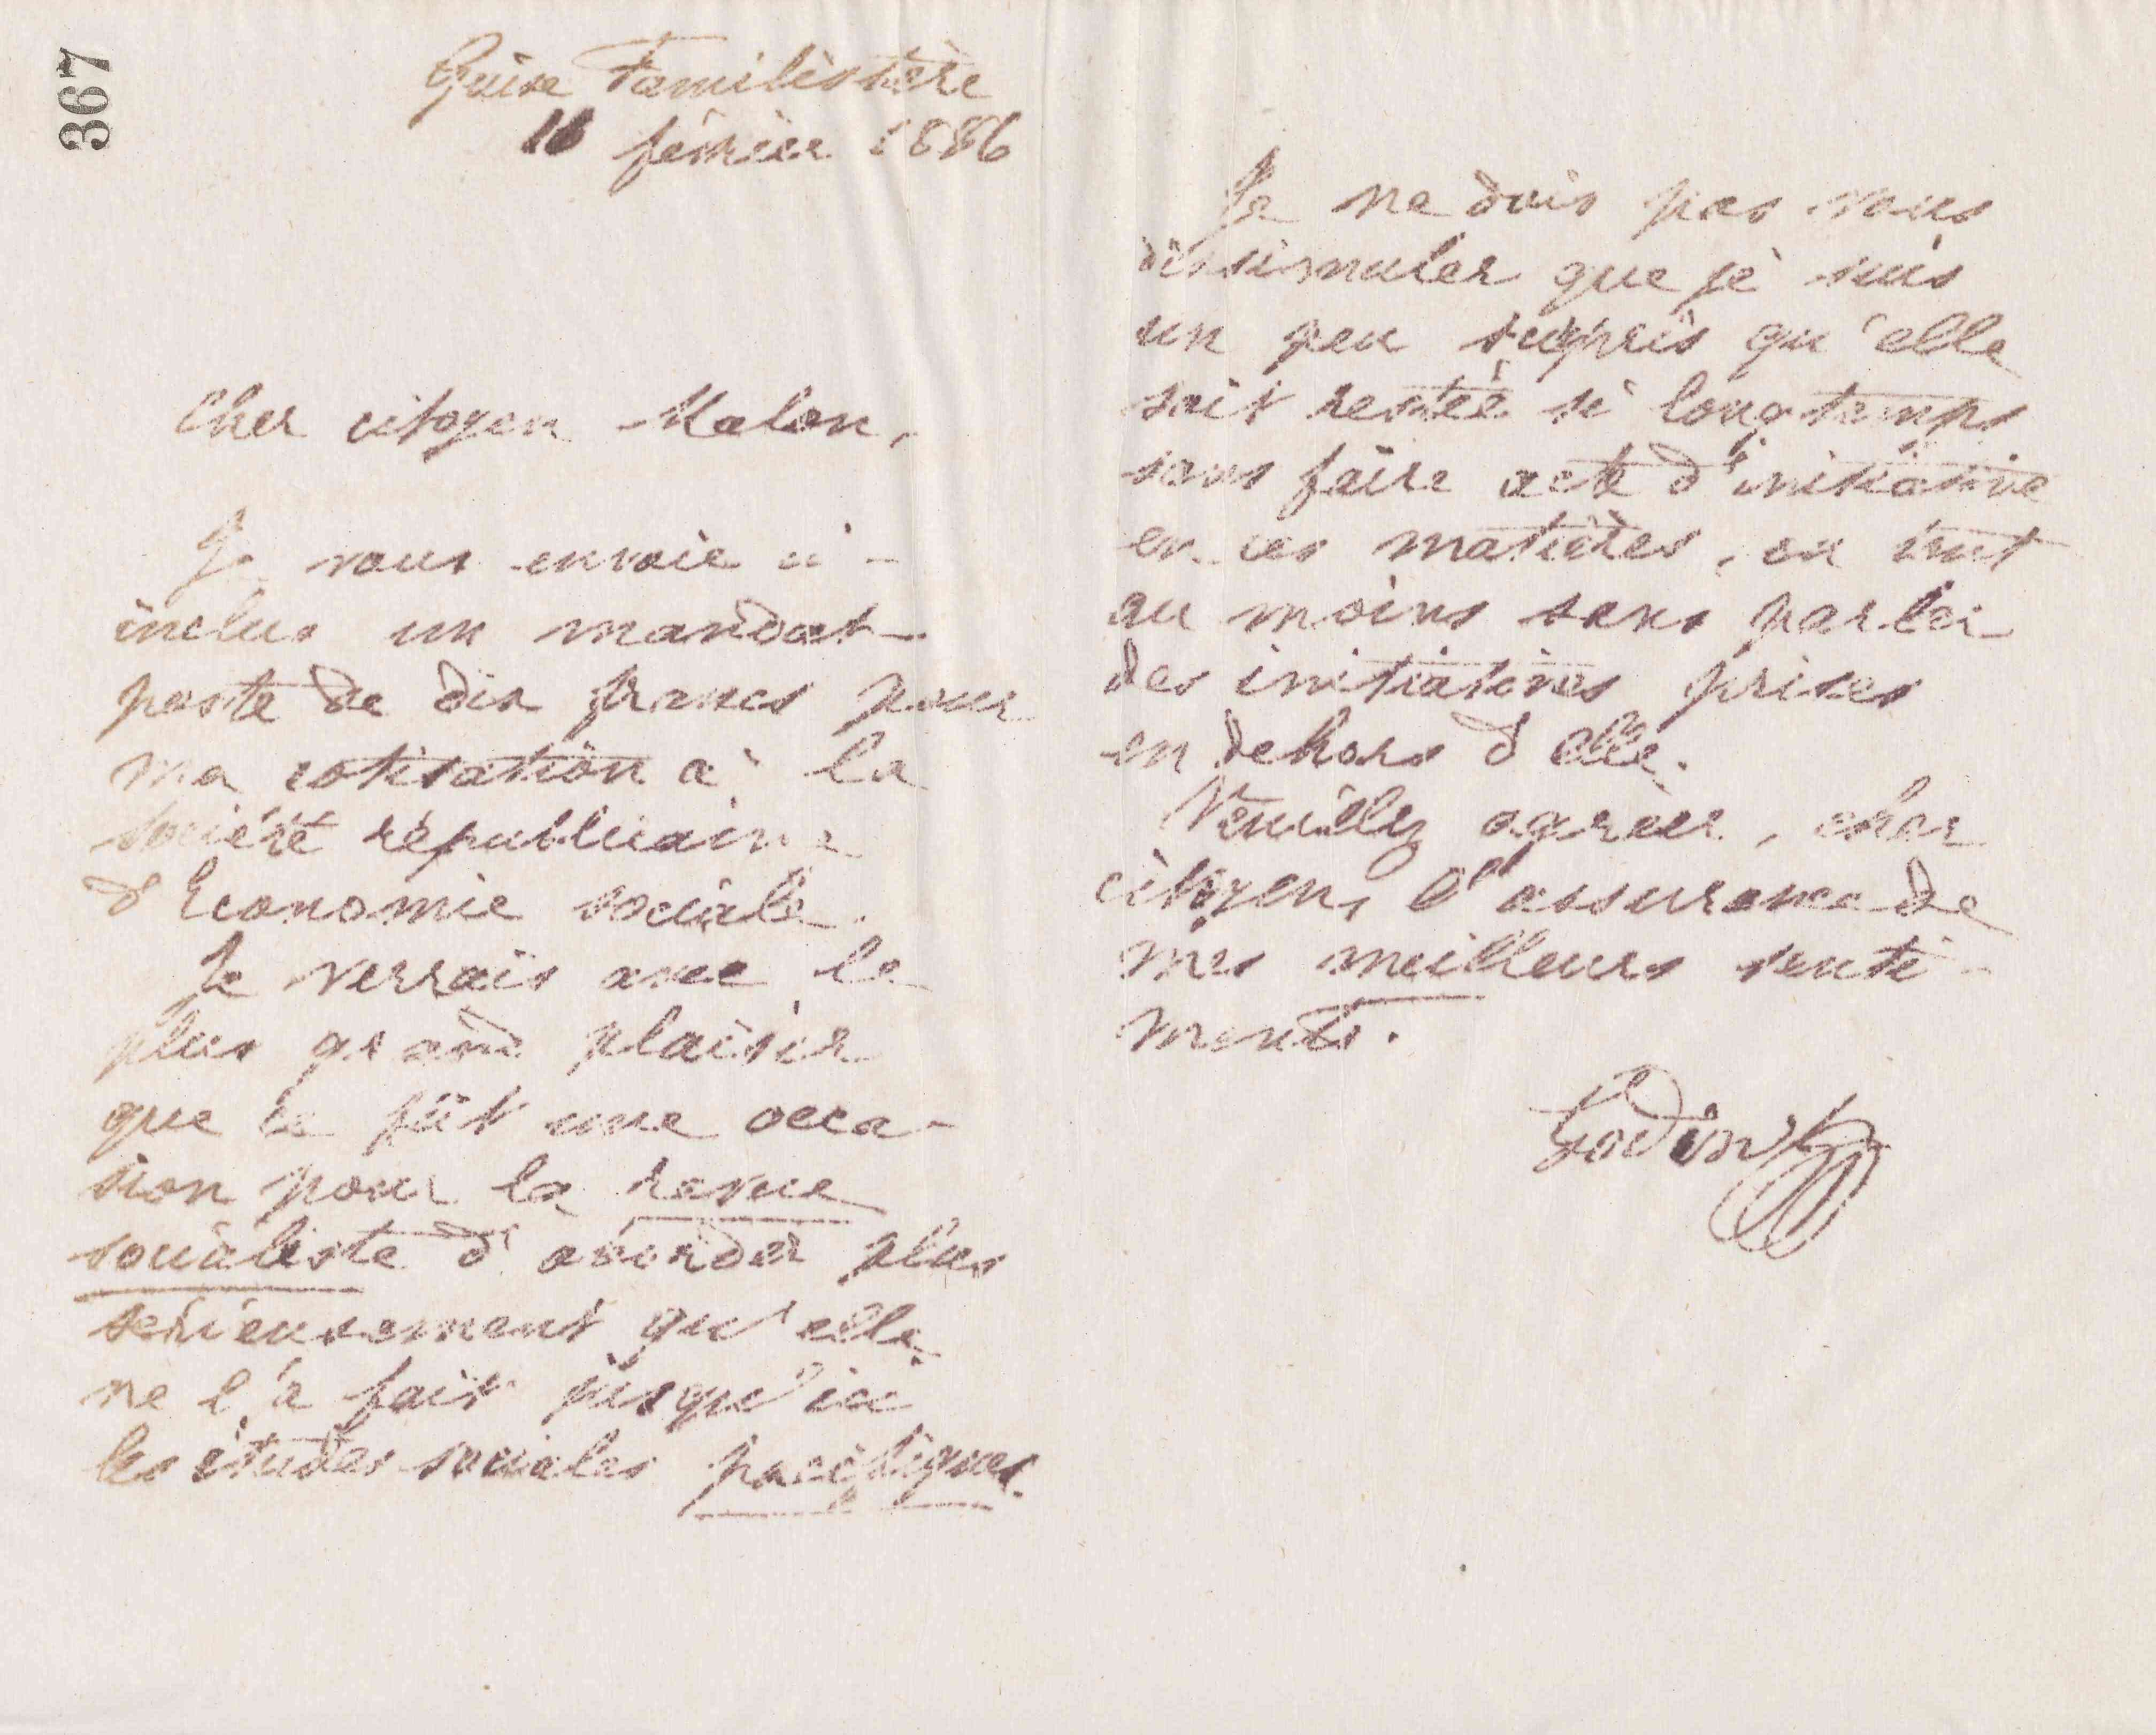 367
Guise Familistère
16 février 1886
Cher citoyen Malon,
Je vous envoie ci-
inclus un mandat-
poste de dix francs pour
ma cotisation à la
Société républicaine
d'Economie sociale.
Je verrais avec le
plus grand plaisir
que ce fût une occa-
sion pour la revue
socialiste d'aborder plus
sérieusement qu'elle
ne l'a fait jusqu'ici
les études sociales pacifiques.
Je ne dois pas vous
dissimuler que je suis
un peu surpris qu'elle
soit restée si longtemps
sans faire acte d'initiative
en ces matières, ou tout
au moins sans parler
des initiatives prises
en dehors d'elle.
Veuillez agréer, cher
citoyen, l'assurance de
mes meilleurs senti-
ments.
Godin